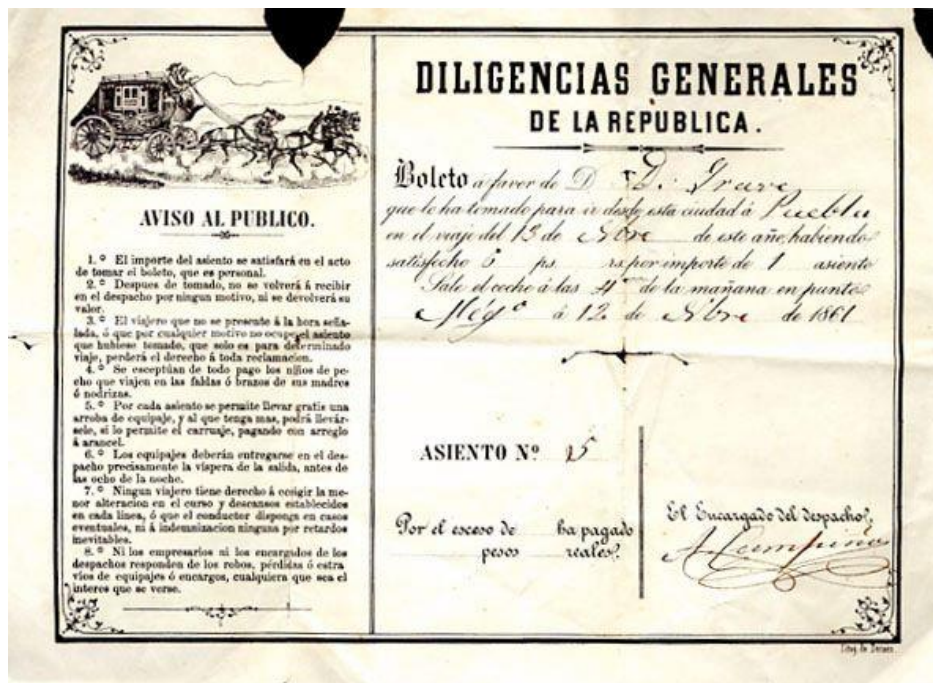 AVISO AL PUBLICO.
1.º El importe del asiento se satisfará en el acto
de tomar el boleto, que es personal.
2.º Despues de tomado, no se volverá á recibir
en el despacho por ningun motivo, ni se devolverá su
valor.
3.º El viajero que no se presente á la hora seña-
lada, ó que por cualquier motivo no ocupe el asiento
que hubiese tomado, que solo es para determinado
viaje, perderá el derecho á toda reclamacion.
4.º Se esceptúan de todo pago los niños de pe-
cho que viajen en las faldas ó brazos de sus madres
ó nodrizas.
5.º Por cada asiento se permite llevar gratis una
arroba de equipaje, y al que tenga mas, podrá llevár-
sele, si lo permite el carruaje, pagando con arreglo
á arancel.
6.º Los equipajes deberán entregarse en el des-
pacho precisamente la víspera de la salida, antes de
las ocho de la noche.
7.º Ningun viajero tiene derecho á ecsigir la me-
nor alteracion en el curso y descansos establecidos
en cada línea, ó que el conductor disponga en casos
eventuales, ni á indemnizacion ninguna por retardos
inevitables.
8.º Ni los empresarios ni los encargados de los
despachos responden de los robos, pérdidas ó estra
vios de equipajes ó encargos, cualquiera que sea el
interes que se verse.
DILIGENCIAS GENERALES
DE LA REPUBLICA.
Boleto á favor de D D.
que lo ha tomado para ir desde esta ciudad á Puebla
en el viaje del 13 de de este año, habiendo
satisfecho 6 ps. rs. por importe de 1 asiento
Sale el coche á las 4 de la mañana en punto
Méjº á 12 de de 1861
ASIENTO Nº 15
Por el esceso de ha pagado
pesos reales.
El Encargado del despacho,